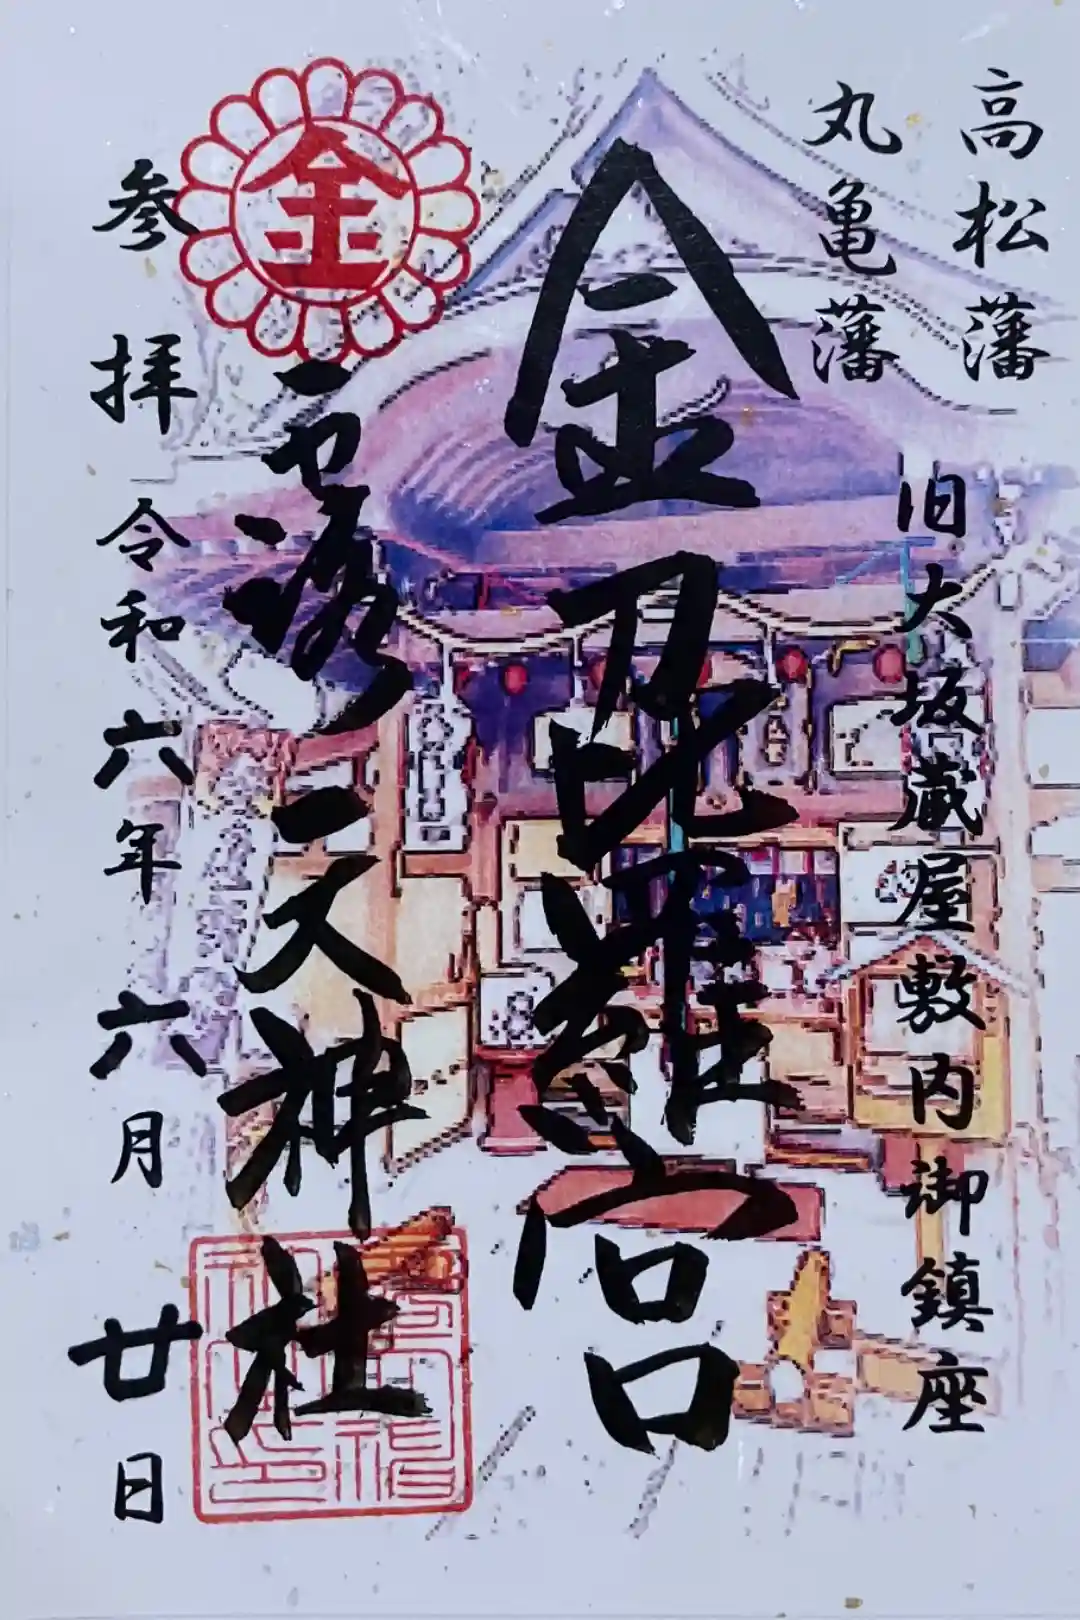 高松藩
丸亀藩
旧大坂蔵屋敷内御鎮座
金刀比羅宮
金
露天神社
参拝 令和六年 六月 廿日